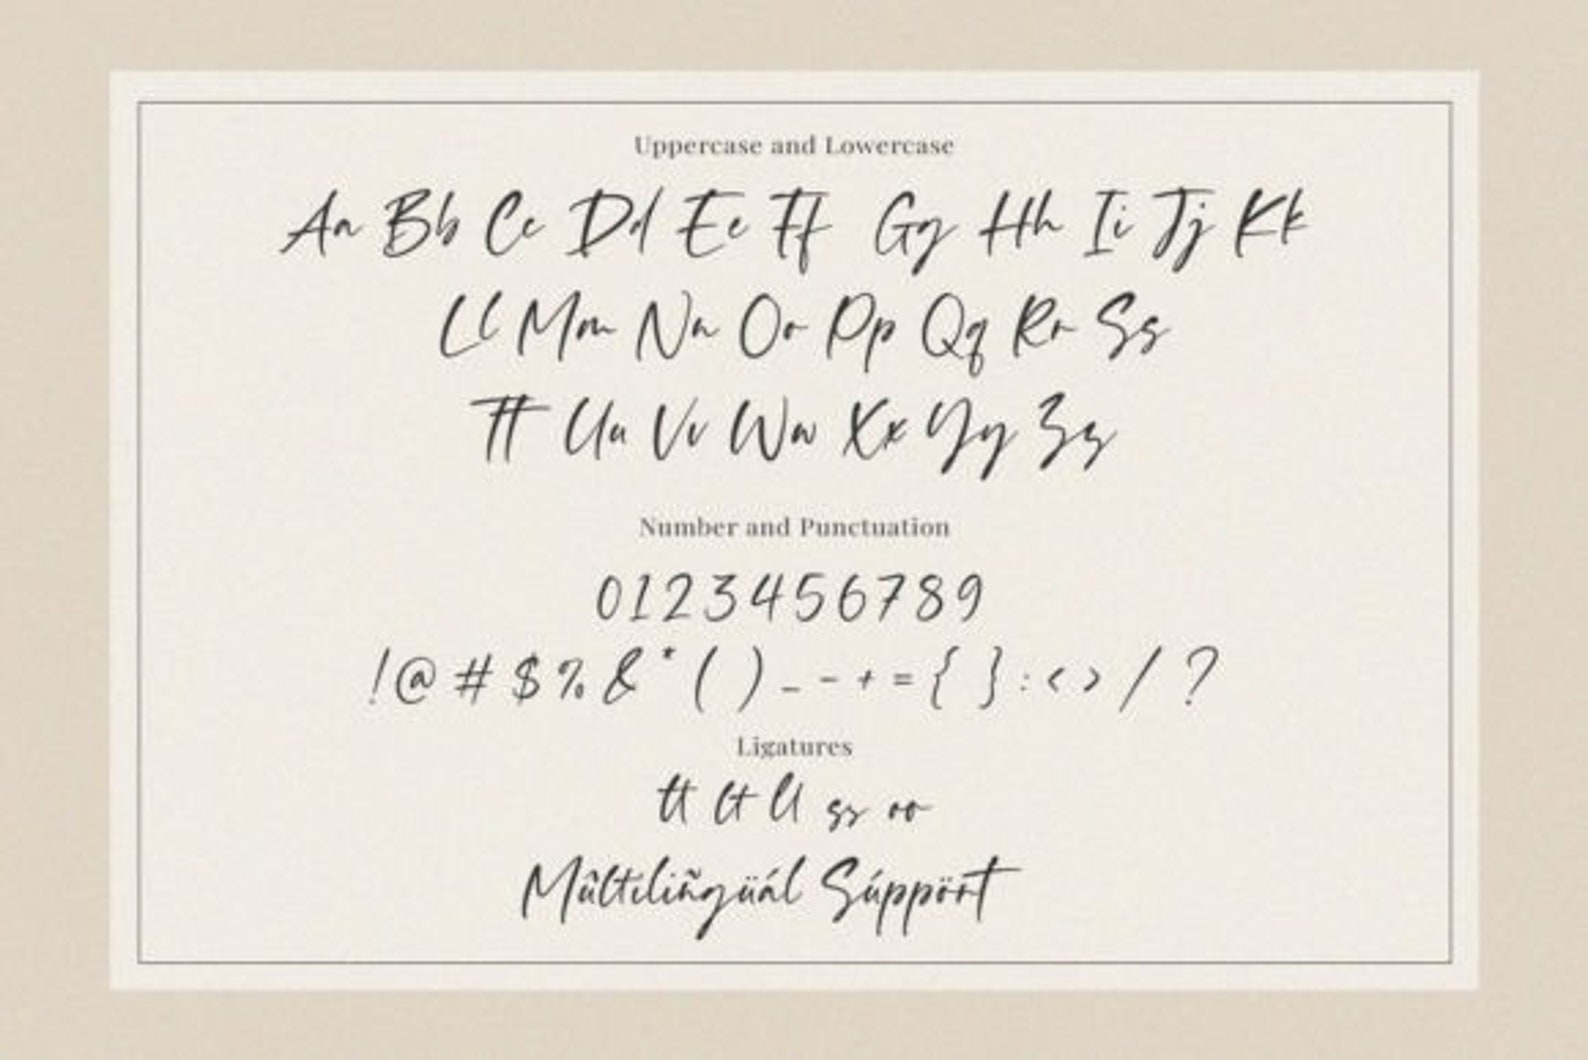 Uppercase and Lowercase
Aa Bb Cc Dd Ee Ff Gg Hh Ii Jj Kk
Ll Mm Nn Oo Pp Qq Rr Ss
Tt Uu Vv Ww Xx Yy Zz
Number and Punctuation
0123456789
!@ # $ % & * ( ) _ - + = { } : < > / ?
Ligatures
tt lt ll ss oo
Mûltiliñgüál Súppört